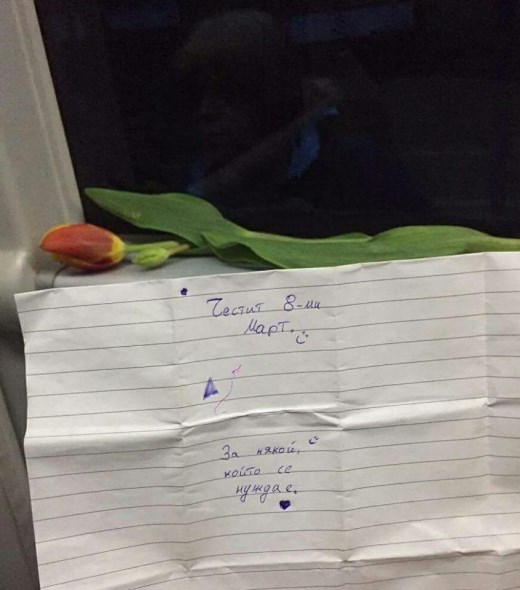 Честит 8-ми
Март.
За някой,
който се
нуждае.